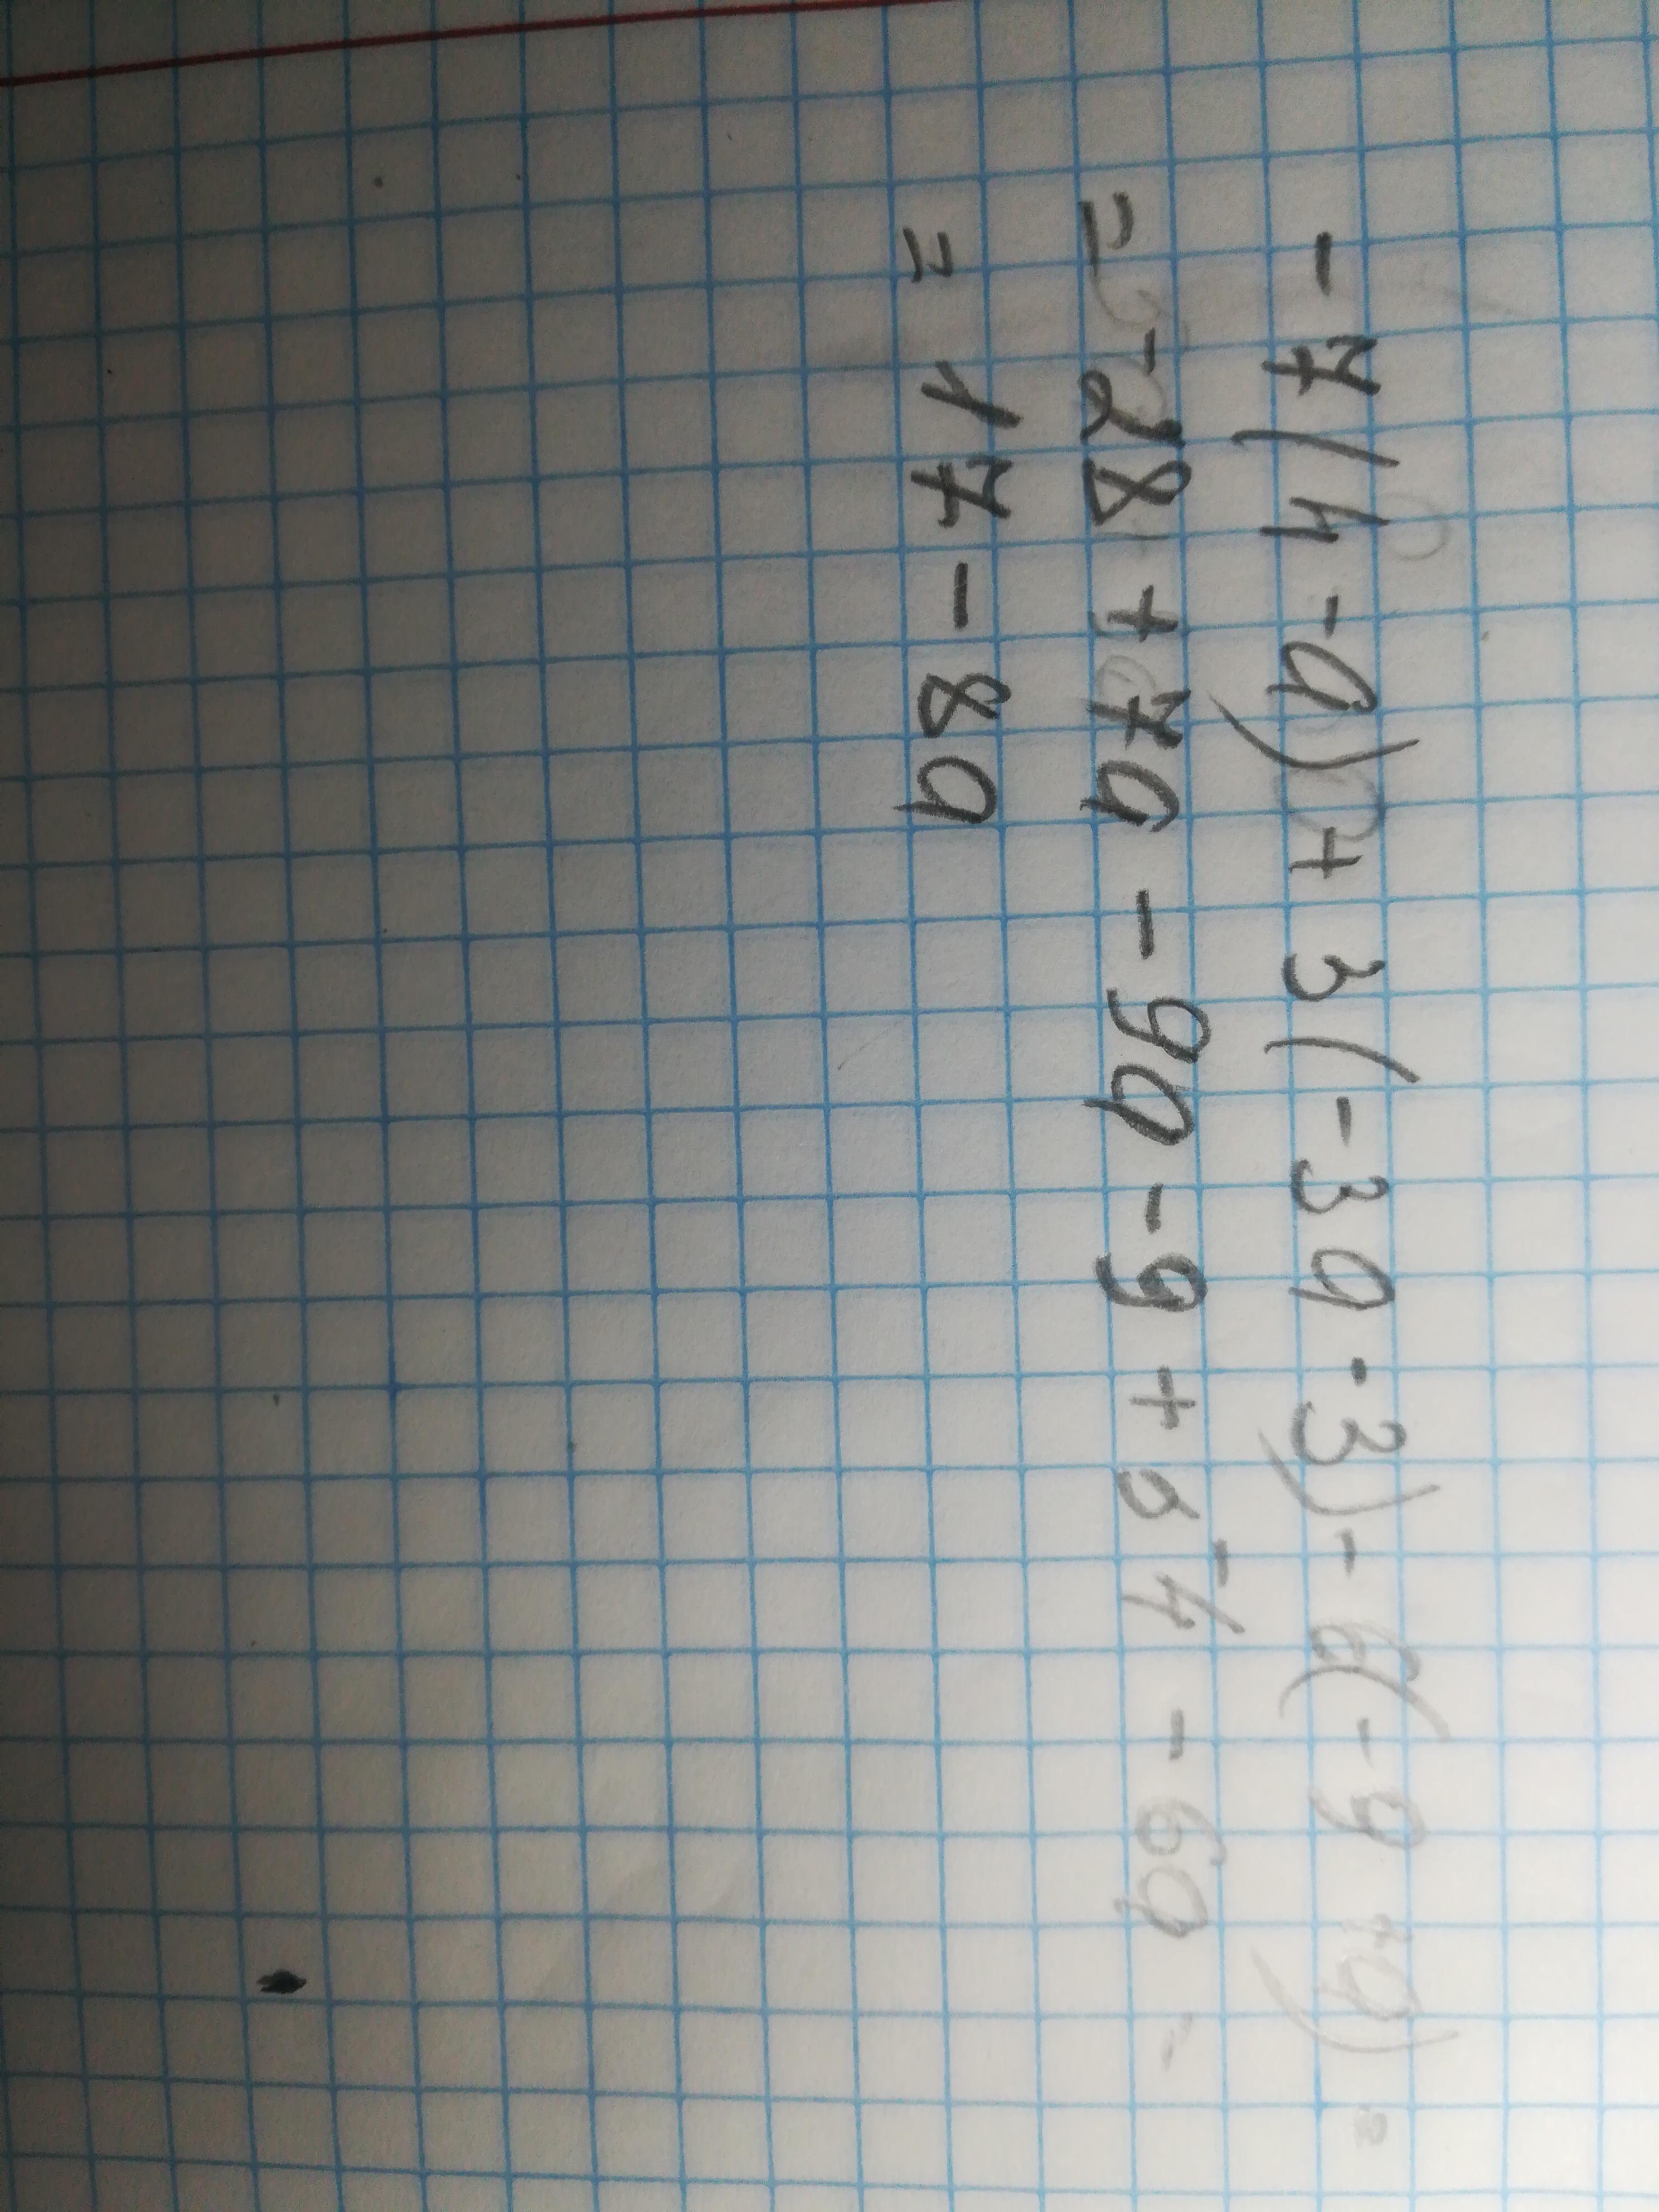 -7(4-a)+3(-3a-3)-6(-9+a)=
=-28+7a-9a-9+54-6a=
=17-8a